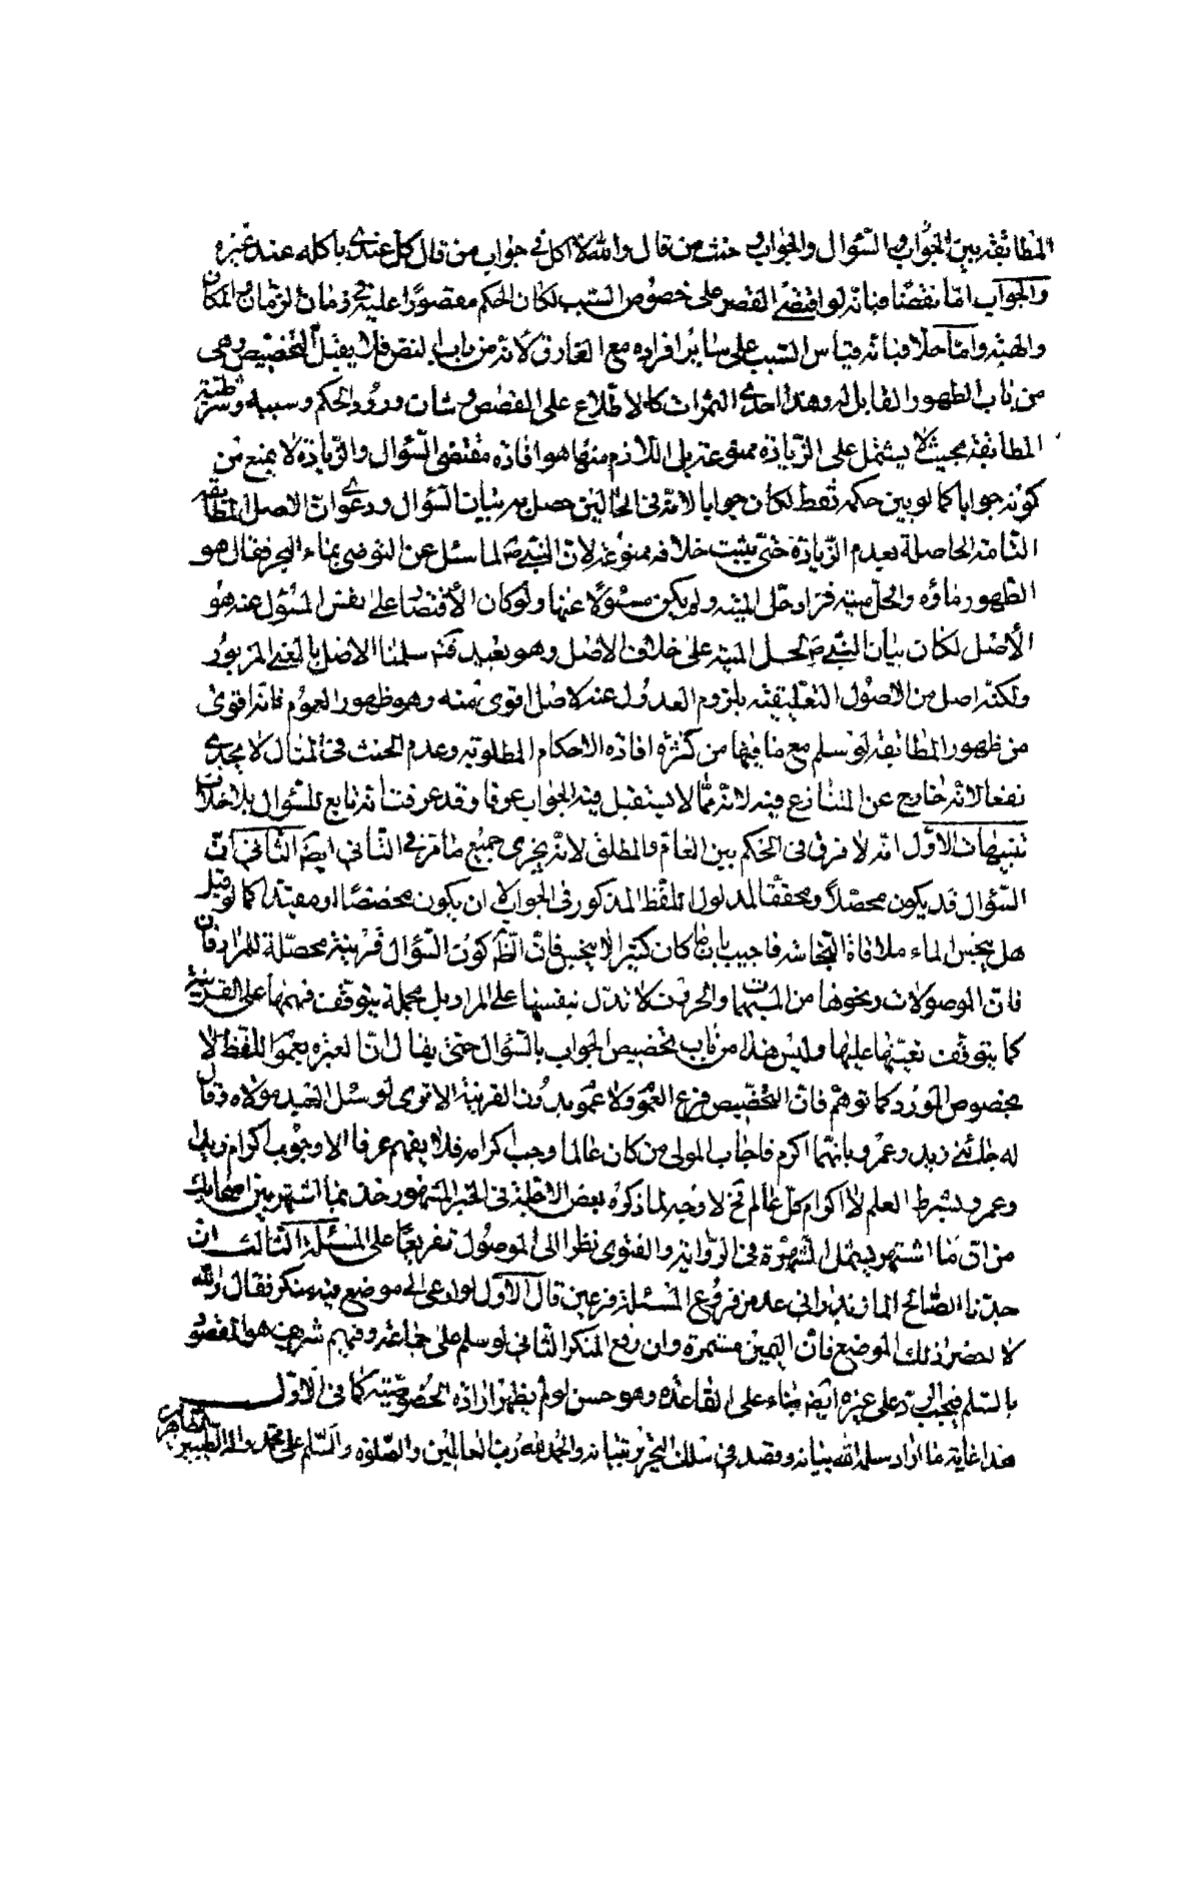 المطابقة بين الجواب والسؤال والجواب وحنث من قال والله لا اكل في جواب من قال كل عندي باكله عند غيره
والجواب امّا نقضًا فبانّه لو اقتضى القصر على خصوص السّبب لكان الحكم مقصورًا عليه في زمان الزمان والمكان
والهيئة وامّا حلا فبانّه قياس السّبب على سائر افراده مع الفارق لانّه من باب النصّ فلا يقبل التّخصيص وهى
من باب الظهور القابل له وهذا احدى الثمرات كالاطّلاع على القصص وشان ورود الحكم وسببه وشرطيّة
المطابقة بحيث لا يشتمل على الزّيادة ممنوعة بل اللّازم منها هو افادة مقتضى السّؤال والزّيادة لا يمنع من
كونه جوابا كما لو بين حكمه فقط لكان جوابا لانّه فى الحالين حصل به بيان السّؤال ودعوى انّ الاصل المطابقة
التّامة الحاصلة بعدم الزّيادة حتّى يثبت خلافه ممنوعة لانّ النبيّ ص لما سئل عن التوضى بماء البحر فقال هو
الطّهور ماؤه والحلّ ميتته فزاد حلّ الميتة ولم يكن مسئولًا عنها ولو كان الأقتصار على نفس المسؤل عنه هو
الأصل لكان بيان النبيّ ص لحل الميتة على خلاف الاصل وهو بعيد سلمنا الاصل بالمعنى المزبور
ولكنّه اصل من الاصول التعليقيّة يلزم العدول عنه لاصل اقوى منه وهو ظهور العموم فانّه اقوى
من ظهور المطابقة لو سلم مع ما فيها من كثرة افادة الاحكام المطلوبة وعدم الحنث فى المثال لا يجدى
نفعا لانّه خارج عن المتنازع فيه لانّه ممّا لا يستقبل فيه الجواب عرفا وقد عرفت انّه تابع للسّؤال بلا خلاف
تنبيهات الاوّل انّه لا فرق فى الحكم بين العامّ والمطلق لانّه يجرى جميع ما مرّ فى الثّانى ايضا الثّانى انّ
السّؤال قد يكون محصّلًا ومحقّقًا لمدلول اللّفظ المذكور فى الجواب لا ان يكون مخصّصًا او مقيّدا كما لو قيل
هل ينجس الماء ملاقاة النّجاسة فاجيب بانّ ما كان كثيرا لا ينجس فانّ الظّ كون السّؤال قرينة محصّلة للمراد فان
فانّ الموصولات ونحوها من المبهمات والحروف لا تدلّ بنفسها على المراد بل مجملة يتوقّف فهمها على القرينة
كما يتوقّف تعيينها عليها وليس هذا من باب تخصيص الجواب بالسّؤال حتى يقال انّ العبرة بعموم اللّفظ لا
بخصوص المورد كما توهّم فانّ التّخصيص فرع العموم ولا عموم بدون القرينة الاترى لو سئل العبد مولاه وقال
له جائنى زيد وعمرو بايّهما اكرم فاجاب المولى من كان عالما وجب اكرامه فلا يفهم عرفا الا وجوب اكرام زيد
وعمرو بشرط العلم لا اكرام كلّ عالم فح لا وجه لما ذكره بعض الاجلّة فى الخبر المشهور خذ بما اشتهر بين اصحابك
من انّ ما اشتهر يشمل الشّهرة فى الرّواية والفتوى نظرا الى الموصول تفريعًا على المسئلة الثّالث انّ
جدّنا الصّالح المازندرانى عد من فروع المسئلة فرعين قال الاوّل لو ادعى الى موضع فيه منكر فقال والله
لا احضر ذلك الموضع فانّ اليمين مستمرة وان رفع المنكر الثّانى لو سلم على جماعة وفيهم شريف هو المقصود
بالسّلم فيجب الرد على غيره ايضا بناء على القاعدة وهو حسن لو لم يظهر ارادة الخصوصيّة كما فى الاوّل
هذا غاية ما اراد سلمه الله بيانه وقصد فى سلك التّحرير تبيانه والحمد لله ربّ العالمين والصّلوة والسّلم على محمّد واله الطّيبين الطّاهرين